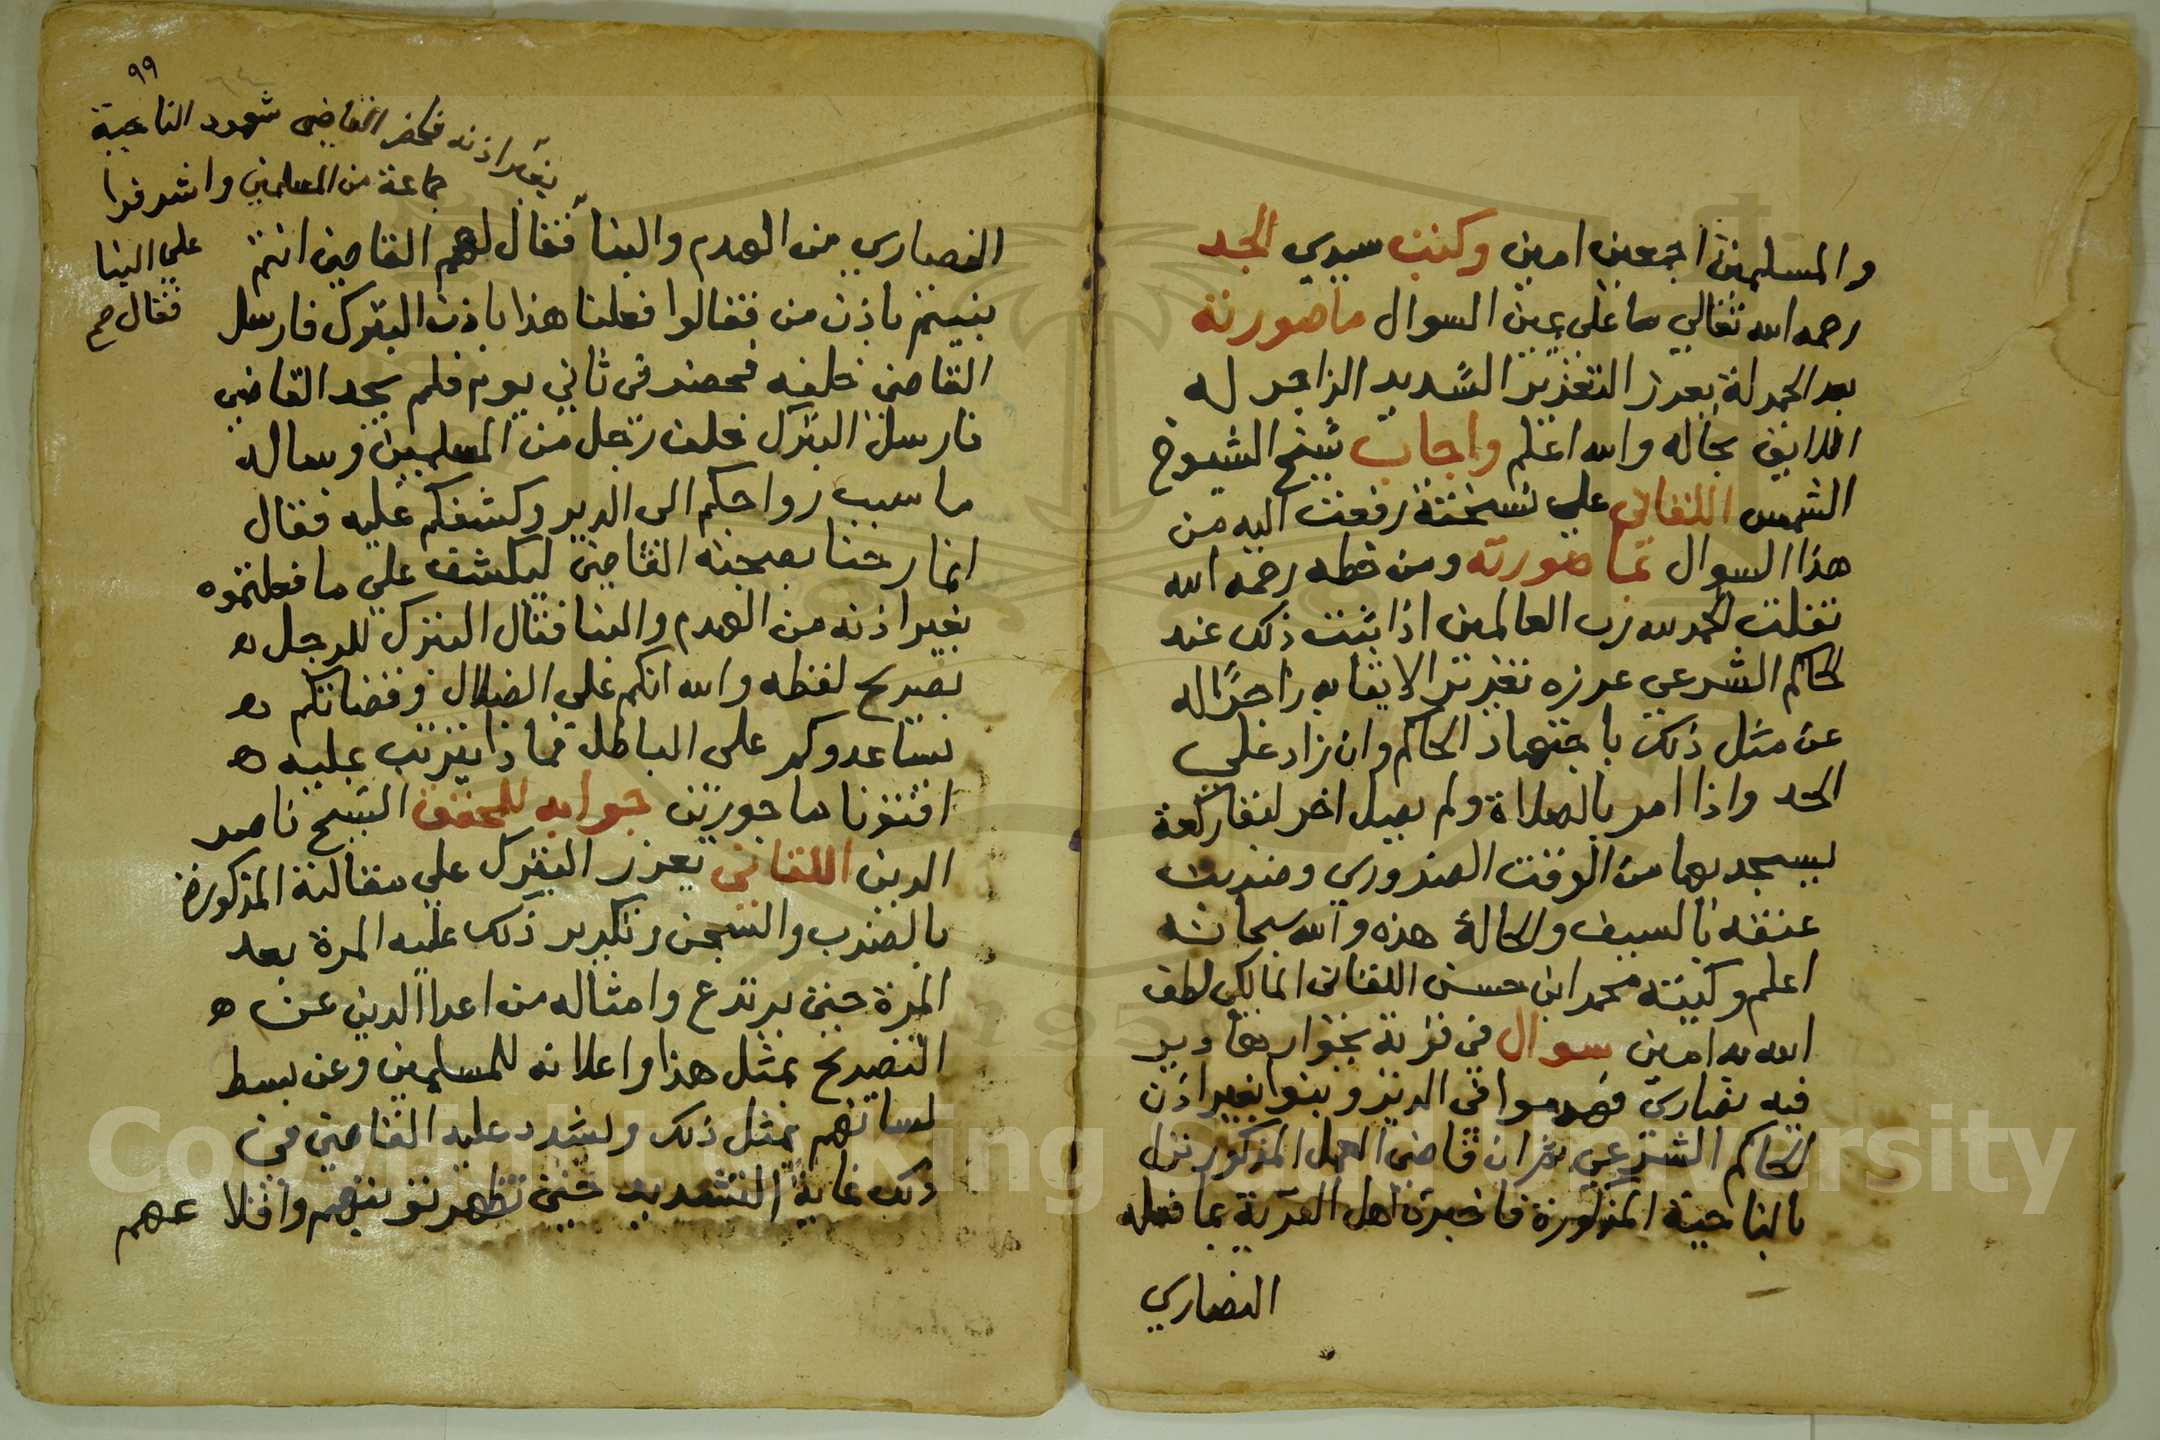 والمسلمين اجمعين امين وكتب سيدي الجد
رحمه الله تعالي ما على عين السوال ما صورته
بعد الحمدلة يعزر التعزير الشديد الزاجر له
اللايق بحاله والله اعلم واجاب شيخ الشيوخ
الشمس اللقاني علي نسخة رفعت اليه من
هذا السوال بما صورته ومن خطه رحمه الله
نقلت الحمد لله رب العالمين اذا ثبت ذلك عند
الحاكم الشرعي عزره تعزير الايقا به زاجرًا له
عن مثل ذلك باجتهاد الحاكم وان زاد علي
الحد واذا امر بالصلاة ولم يصل اخر لبقا ركعة
بسجديها من الوقت الضروري وضربت
عنقه بالسيف والحالة هذه والله سبحانه
اعلم وكتبه محمد ابن حسن اللقاني المالكي لطف
الله به امين سوال في قرية بجوارها دير
فيه نصاري فهدموا في الدير وبنوا بغير اذن
الحاكم الشرعي ثم ان قاضي العمل المذكور نزل
بالناحية المذكورة فاخبره اهل القرية بما فعله
النصاري
٩٩
بغير اذنه فحضر القاضي شهود الناحية
جماعة من المسلمين واشرفوا
علي البنا
فقال صح
النصاري من الهدم والبنا فقال لهم القاضي انتم
بنيتم باذن من فقالوا فعلنا هذا باذن البترك فارسل
القاضي خلفه فحضر في ثاني يوم فلم يجد القاضي
فارسل البترك خلف رجل من المسلمين وساله
ما سبب رواحكم الى الدير وكشفكم عليه فقال
انما رحنا بصحبة القاضي ليكشف علي ما فعلتموه
بغير اذنه من الهدم والبنا فقال البترك للرجل ه
بصريح لفظه والله انكم علي الضلال وقضاتكم ه
تساعدوكم على الباطل فماذا يترتب عليه ه
افتونا ماجورين جوابه للمحقق الشيخ ناصر
الدين اللقاني يعزر البترك علي مقالته المذكورة
بالضرب والسجن وتكرير ذلك عليه المرة بعد
المرة حتى يرتدع وامثاله من اعدا الدين عن ه
التصريح بمثل هذا واعلانه للمسلمين وعن بسط
لسانهم بمثل ذلك ويشدد عليه القاضي في
ذلك غاية التشديد حتى تظهر توبتهم واقلاعهم